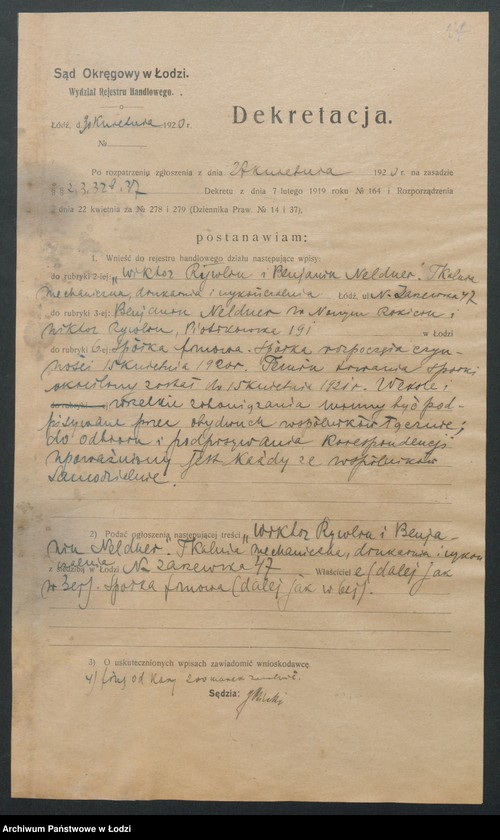 Sąd Okręgowy w Łodzi.
Wydział Rejestru Handlowego.
Łódź, d. kwietnia 1920 r.
№
Dekretacja.
Po rozpatrzeniu zgłoszenia z dnia kwietnia 1920 r. na zasadzie
Dekretu z dnia 7 lutego 1919 roku № 164 i Rozporządzenia
z dnia 22 kwietnia za № 278 i 279 (Dziennika Praw. № 14 i 37);
postanawiam:
1. Wnieść do rejestru handlowego działu następujące wpisy:
do rubryki 2-ej: „Wiktor Rywlou i Benjamin Neldner". Tkalnia
mechaniczna, drukarnia i wykończalnia Łódź, ul. Nw. Zarzewska 47
do rubryki 3-ej: Benjamin Neldner w Nowym Rokiciu i
Wiktor Rywlou, Piotrkowska 191 w Łodzi
do rubryki 6-ej: Spółka firmowa. Spółka rozpoczęła czyn-
ności 15 kwietnia 1920 r. Termin trwania spółki
określony został do 15 kwietnia 1921 r. Weksle i
do rubryki wszelkie zobowiązania winny być pod-
pisywane przez obydwuch wspólników łącznie;
do odbioru i podpisywania korespondencji
upoważniony jest każdy ze wspólników
samodzielnie.
2) Podać ogłoszenia następującej treści: „Wiktor Rywlou i Benja-
min Neldner". Tkalnia mechaniczna, drukarnia i wykoń-
czalnia
z siedzibą w Łodzi Nw. Zarzewska 47 Właściciele (dalej jak
w 3 ej). Spółka firmowa (dalej jak w 6 ej).
3) O uskutecznionych wpisach zawiadomić wnioskodawcę.
4) od
Sędzia:
Archiwum Państwowe w Łodzi